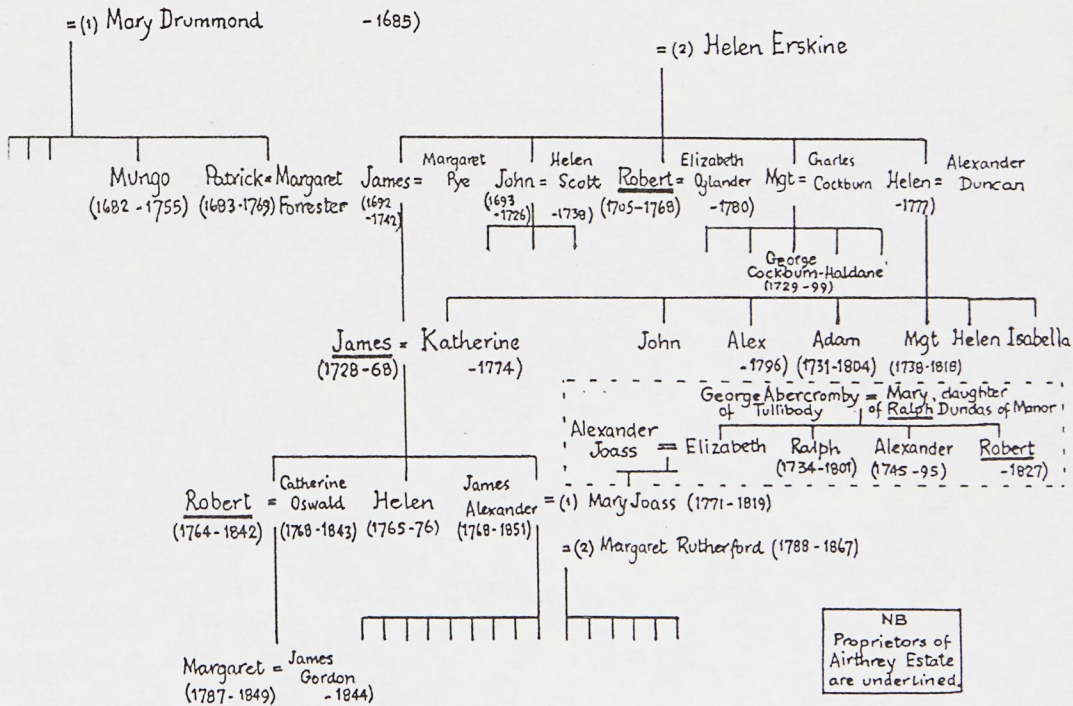 = (1) Mary Drummond - 1685)
= (2) Helen Erskine
Mungo
(1682 - 1755)
Patrick = Margaret
(1683 - 1769) Forrester
James = Margaret
Pye
(1692
- 1742)
John = Helen
Scott
(1693
- 1726) - 1738)
Robert = Elizabeth
Oglander
(1705 - 1768) - 1780)
Mgt = Charles
Cockburn
Helen = Alexander
Duncan
- 1777)
George
Cockburn-Haldane
(1729 - 99)
James = Katherine
(1728 - 68) - 1774)
John
Alex
- 1796)
Adam
(1731 - 1804)
Mgt
(1738 - 1818)
Helen Isabella
George Abercromby = Mary, daughter
of Tullibody of Ralph Dundas of Manor
Alexander
Joass = Elizabeth
Ralph
(1734 - 1801)
Alexander
(1745 - 95)
Robert
- 1827)
Robert = Catherine
Oswald
(1764 - 1842) (1768 - 1843)
Helen
(1765 - 76)
James
Alexander = (1) Mary Joass (1771 - 1819)
(1768 - 1851)
= (2) Margaret Rutherford (1788 - 1867)
Margaret = James
Gordon
(1787 - 1849) - 1844)
NB
Proprietors of
Airthrey Estate
are underlined.